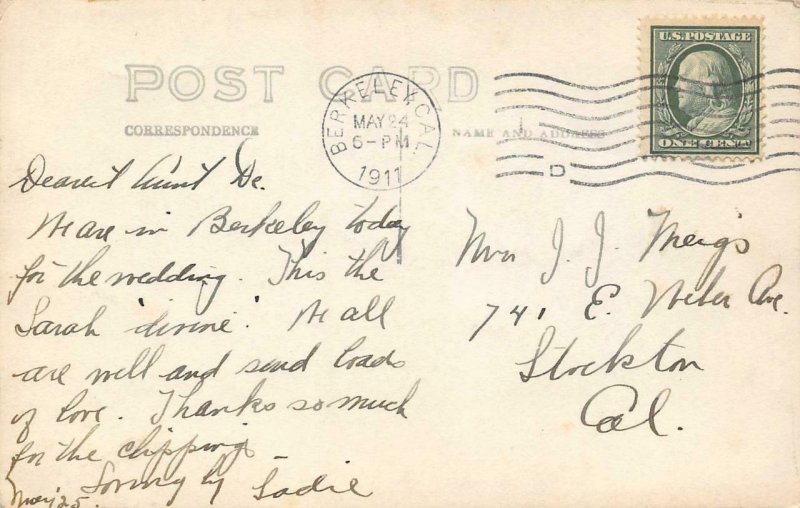 POST CARD
CORRESPONDENCE
NAME AND ADDRESS
BERKELEY, CAL.
MAY 24
6-PM
1911
D
U.S. POSTAGE
ONE CENT
Dearest Aunt De.
We are in Berkeley today
for the wedding. This the
Sarah 'divine'. We all
are well and send loads
of love. Thanks so much
for the clipping
Lovingly Sadie
May 25.
Mrs J. J. Meigs
741 E. Weber Ave.
Stockton
Cal.